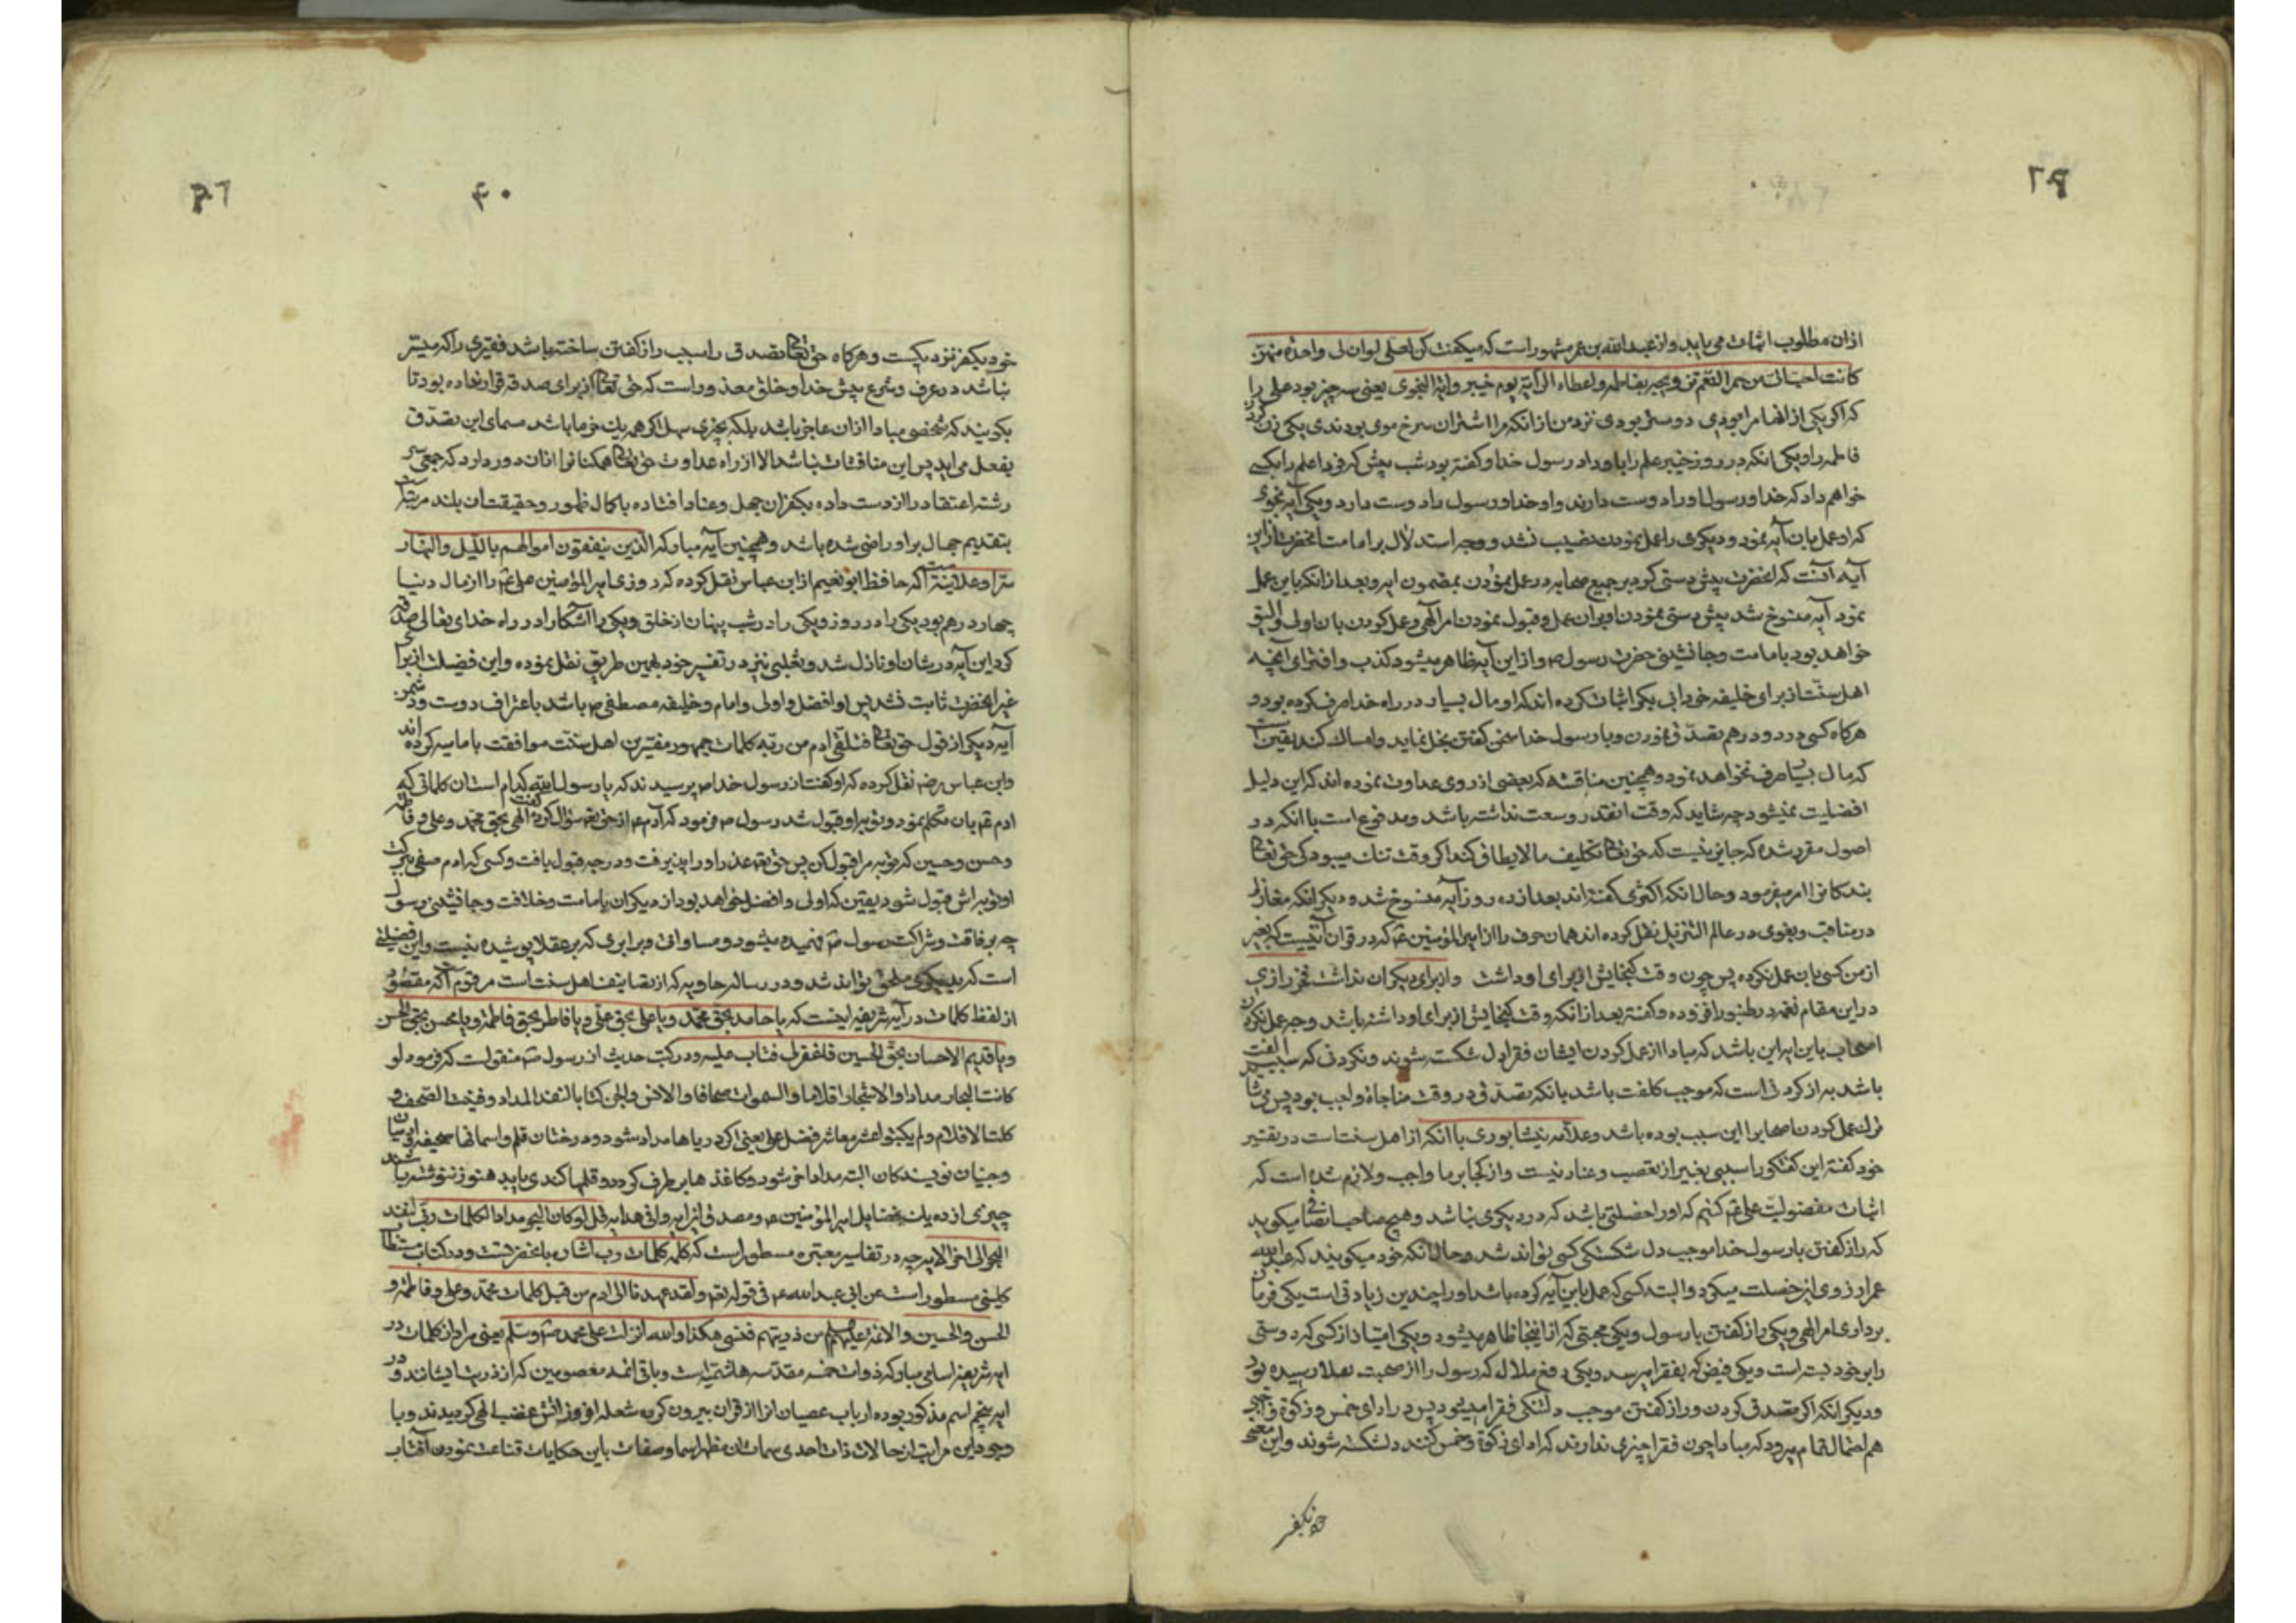 از ان مطلوب اثبات می یابد و از عبدالله بن عمر مشهور است که میکفت کن لعلی لو ان لی واحدة منهن
کانت احب الی من حمر النعم تزویجه بفاطمه و اعطاه الرایه یوم خیبر و ایة النجوی یعنی سه چیز بود علی را
که اکر یکی از انها مرا بودی دوستر بودی نزد من از انکه مرا اشتران سرخ موی بودندی یکی زن کردن
فاطمه را و یکی انکه در روز خیبر علم را باو داد رسول خدا و کفته بود شب پیش که فردا علم را بکسی
خواهم داد که خدا و رسول او را دوست دارند و او خدا و رسول را دوست دارد و یکی آیه نجوی
که او عمل بان آیه نمود و دیکری را عمل نمودن نصیب نشد و وجه استدلال بر امامت انحضرت از این
آیه آنست که انحضرت پیش دستی کرد بر جمیع صحابه در عمل نمودن بمضمون ایه و بعد از انکه باین عمل
نمود آیه منسوخ شد پیش دستی نمودن او بران عمل و قبول نمودن امر الهی و عمل کردن بان اولی و الیق
خواهد بود بامامت و جانشینی حضرت رسول ص و از این آیه ظاهر میشود کذب و افترای آنچه
اهل سنت از برای خلیفه خود ابی بکر اثبات کرده اند که او مال بسیار در راه خدا صرف کرده بود و
هرکاه کسی در دو درهم تصدق نمودن و با رسول خدا سخن کفتن بخل نماید و امساک کند یقین است
که مال بسیار صرف نخواهد نمود و همچنین مناقشه که بعضی از روی عداوت نموده اند که این دلیل
افضلیت نمیشود چه شاید که وقت انقدر وسعت نداشته باشد و مدفوع است با انکه در
اصول مقرر شده که جایز نیست که حق تعالی تکلیف ما لا یطاق کند اکر وقت تنک میبود کی حق تعالی
بندکانرا امر میفرمود و حال انکه اکثری کفته اند بعد از ده روز آیه منسوخ شد و دیکر انکه مغازلی
در مناقب و بغوی در معالم التنزیل نقل کرده اند همان حرف را از امیر المؤمنین ع که در قران آیتیست که بغیر
از من کسی بان عمل نکرده پس چون وقت کنجایش از برای او داشت و از برای دیکران نداشت فخر رازی
در این مقام نغمه در طنبور افزوده و کفته بعد از انکه وقت کنجایش از برای او داشته باشد وجه عمل نکردن
اصحاب باین ایه این باشد که مبادا از عمل کردن ایشان فقرا دل شکسته شوند و نکردنی که سبب الفت
باشد به از کردنی است که موجب کلفت باشد بانکه تصدق در وقت مناجاة واجب بود پس می شاید
ترک عمل کردن صحابه را این سبب بوده باشد و علامه نیشابوری با انکه از اهل سنت است در تفسیر
خود کفته این کفتکو را سببی بغیر از تعصب و عناد نیست و از کجا بر ما واجب و لازم شده است که
اثبات مفضولیت علی ع کنیم که او را خصلتی باشد که در دیکری نباشد و هیچ صاحب انصافی میکوید
که راز کفتن با رسول خدا موجب دل شکستکی کسی تواند شد و حال انکه خود میکویند که عبدالله
عمر ارزوی این خصلت میکرد و البته کسی که عمل باین آیه کرده باشد او را چندین زیادتی است یکی فرمان
برداری امر الهی و یکی راز کفتن با رسول و یکی محبتی که از اینجا ظاهر میشود و یکی امتیاز از کسی که دوستی
را بر خود بسته است و یکی فیض که بفقرا میرسد و یکی دفع ملال که رسول را از صحبت بملا رسیده بود
و دیکر انکه اکر تصدق کردن و راز کفتن موجب دلتنکی فقرا میبود پس در ادای خمس و زکوة واجبی
هم احتمال تمام میرود که مبادا چون فقرا چیزی ندارند که ادای زکوة و خمس کنند دلشکسته شوند و این معنی
خود بکفر
۴۰
خود بکفر نزدیکست و هرکاه حق تعالی تصدق را سبب راز کفتن ساخته باشد فقیری را که میسر
نباشد در عرف و شرع پیش خدا و خلق معذور است که حق تعالی از برای صدقه قرار نداده بود تا
بکویند که شخصی مبادا از ان عاجز باشد بلکه بچیزی سهل اکر همه یک خرما باشد مسمای این تصدق
بفعل می اید پس این مناقشات نباشد الا از راه عداوت حق تعالی همکنانرا از ان دور دارد که جمعی سر
رشته اعتقاد را از دست داده بکفران جهل و عناد افتاده با کمال ظهور و حقیقت ان بلند مرتبت
بتقدیم جهال بر او راضی شده باشد و همچنین آیه مبارکه الذین ینفقون اموالهم باللیل والنهار
سرا و علانیة که حافظ ابو نعیم از ابن عباس نقل کرده که روزی امیر المؤمنین علی ع را از مال دنیا
چهار درهم بود یکی را در روز و یکی را در شب پنهان از خلق و یکی را آشکارا در راه خدای تعالی صدقه
کرد این آیه در شان او نازل شد و ثعلبی نیز در تفسیر خود بهمین طریق نقل نموده و این فضیلت از برای
غیر انحضرت ثابت نشد پس او افضل و اولی و امام و خلیفه مصطفی ص باشد باعتراف دوست و دشمن
آیه دیکر از قول حق تعالی فتلقی ادم من ربه کلمات جمهور مفسرین اهل سنت موافقت با امامیه کرده اند
و ابن عباس رض نقل کرده که او کفت از رسول خدا ص پرسیدند که یا رسول الله کدام است ان کلماتی که
ادم ع بان تکلم نمود و توبه او قبول شد رسول ص فرمود که آدم ع از حق تعالی سؤال کرد و کفت الهی بحق محمد و علی و فاطمه
و حسن و حسین که توبه مرا قبول کن پس حق تعه عذر او را پذیرفت و درجه قبول یافت و کسی که ادم صفی ببرکت
او توبه اش قبول شود یقین که اولی و افضل خواهد بود از دیکران بامامت و خلافت و جانشینی رسول
چه برفاقت و شراکت رسول ص فهمیده میشود و مساواتی و برابری که بر عقلا پوشیده نیست و این فضیلتی
است که بدیکری ملحق تواند شد و در رساله حاویه که از تصانیف اهل سنت است مرقوم است که مقصود
از لفظ کلمات در آیه شریفه اینست که یا حامد بحق محمد و یا علی بحق علی و یا فاطر بحق فاطمة و یا محسن بحق الحسن
و یا قدیم الاحسان بحق الحسین فاغفرلی فتاب علیه و در کتب حدیث از رسول ص منقولست که فرمود لو
کانت البحار مدادا و الاشجار اقلاما و السموات صحافا و الانس و الجن کتابا لنفد المداد و فنیت الصحف و
کلت الاقلام و لم یکتبوا عشر معاشر فضل علی یعنی اکر دریاها مداد شود و درختان قلم و اسمانها صحیفه و ادمیان
و جنیان نویسندکان البته مداد اخر شود و کاغذ ها بر طرف کردد و قلمها کندی یابد هنوز ننوشته باشند
چیزی از ده یک فضایل امیر المؤمنین ع و مصدق این ایه وافی هدایه قل لو کان البحر مدادا لکلمات ربی لنفد
البحر الی اخر الایه چه در تفاسیر معتبره مسطور است که کلمه کلمات رب اشاره بانحضرتست و در کتاب مستطاب
کلینی مسطور است عن ابی عبدالله ع فی قوله تعه و لقد عهدنا الی ادم من قبل کلمات محمد و علی و فاطمة و
الحسن و الحسین و الائمة علیهم السلم من ذریتهم فنسی هکذا والله انزلت علی محمد ص و سلم یعنی مراد از کلمات در
ایه شریفه اسامی مبارکه ذوات خمسه مقدسه هاشمیه است و باقی ائمه معصومین که از ذریت ایشانند و در
ایه پنجم اسم مذکور بوده ارباب عصیان انرا از قران بیرون کرده شعله افروز اتش غضب الهی کردیدند و با
وجود این مراتب از حالات ذات احدی سمات ان مظهر اسما و صفات باین حکایات قناعت نمودن آفتاب